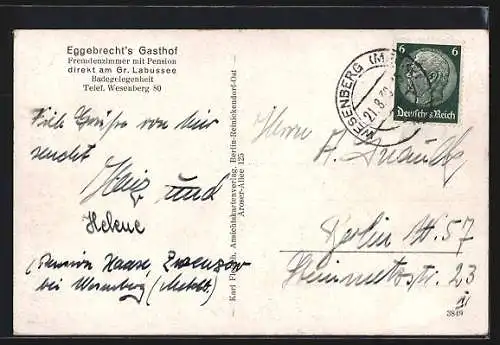 Eggebrecht's Gasthof
Fremdenzimmer mit Pension
direkt am Gr. Labussee
Badegelegenheit
Telef. Wesenberg 80
Viele Grüße von hier
sendet
und
Helene
(Pension Haase, Zwenzow
bei Wesenberg (Meckl.)
Karl Fl Ansichtskartenverlag, Berlin-Reinickendorf-Ost
Aroser-Allee 125
WESENBERG (M
21.8.
6 6
Deutsches Reich
Herrn
Berlin W. 57
Steinmetzstr. 23
II
3849